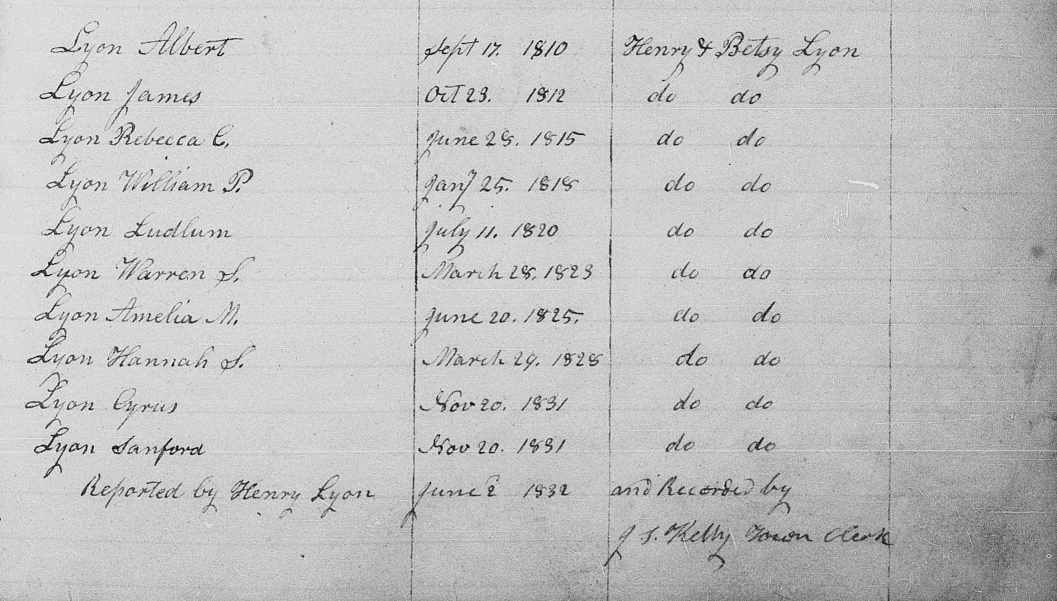 Lyon Albert Sept 17. 1810 Henry & Betsy Lyon
Lyon James Oct 23. 1812 do do
Lyon Rebecca C. June 28. 1815 do do
Lyon William P. Jany 25. 1818 do do
Lyon Ludlum July 11. 1820 do do
Lyon Warren S. March 28. 1823 do do
Lyon Amelia M. June 20. 1825. do do
Lyon Hannah S. March 29. 1828 do do
Lyon Cyrus Nov 20. 1831 do do
Lyon Sanford Nov 20. 1831 do do
Reported by Henry Lyon June 2 1832 and Recorded by
J S. Kelly Town Clerk